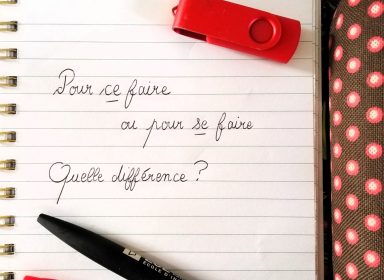 Pour ce faire
ou pour se faire
Quelle différence ?